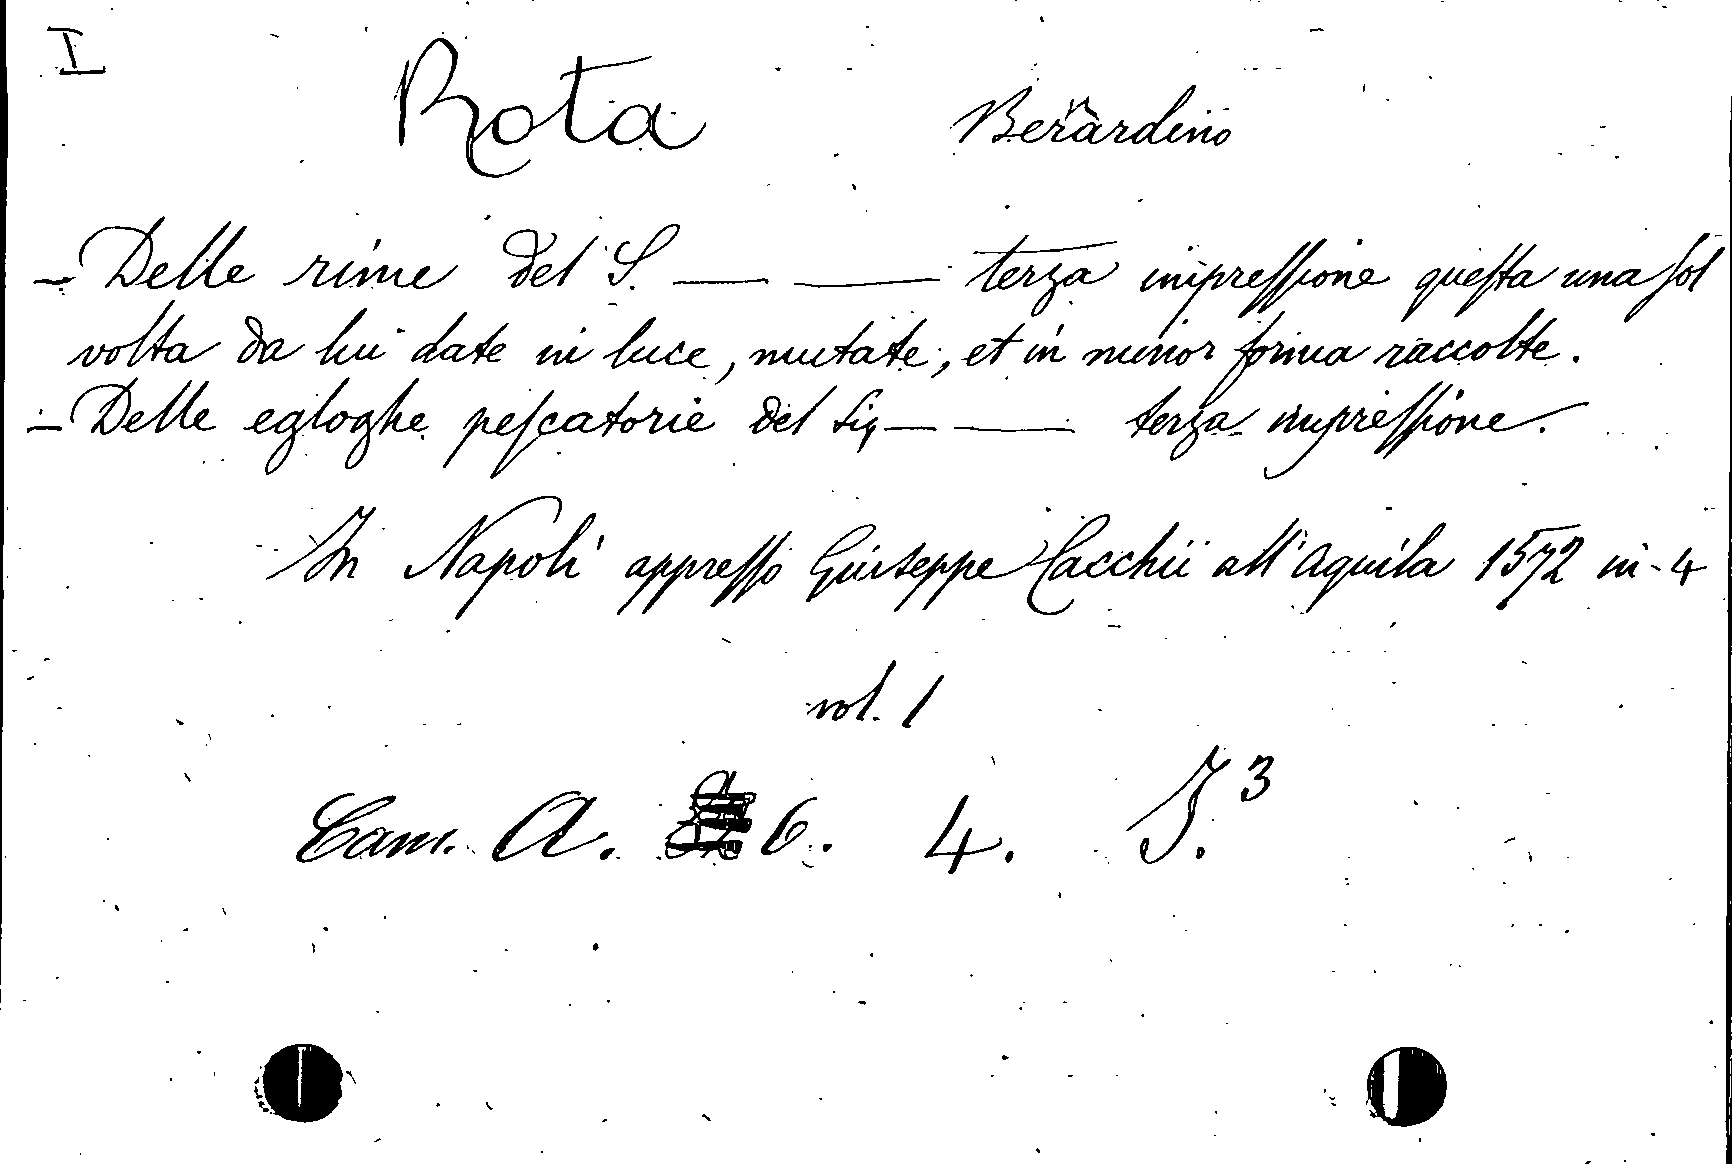 I
Rota Berardino
- Delle rime del S. — — terza impreſſione queſta una ſol
volta da lui date in luce, mutate, et in minor forma raccolte.
- Delle egloghe peſcatorie del Sig — — terza impreſſione.
In Napoli appreſſo Giuseppe Cacchii all'aquila 1572 in-4
vol. 1
Cam. A. 6. 4. I.3